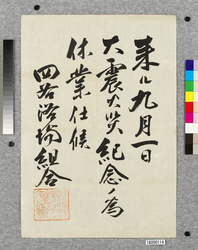 来ル九月一日
大震火災紀念ノ為
休業仕候
四谷浴場組合